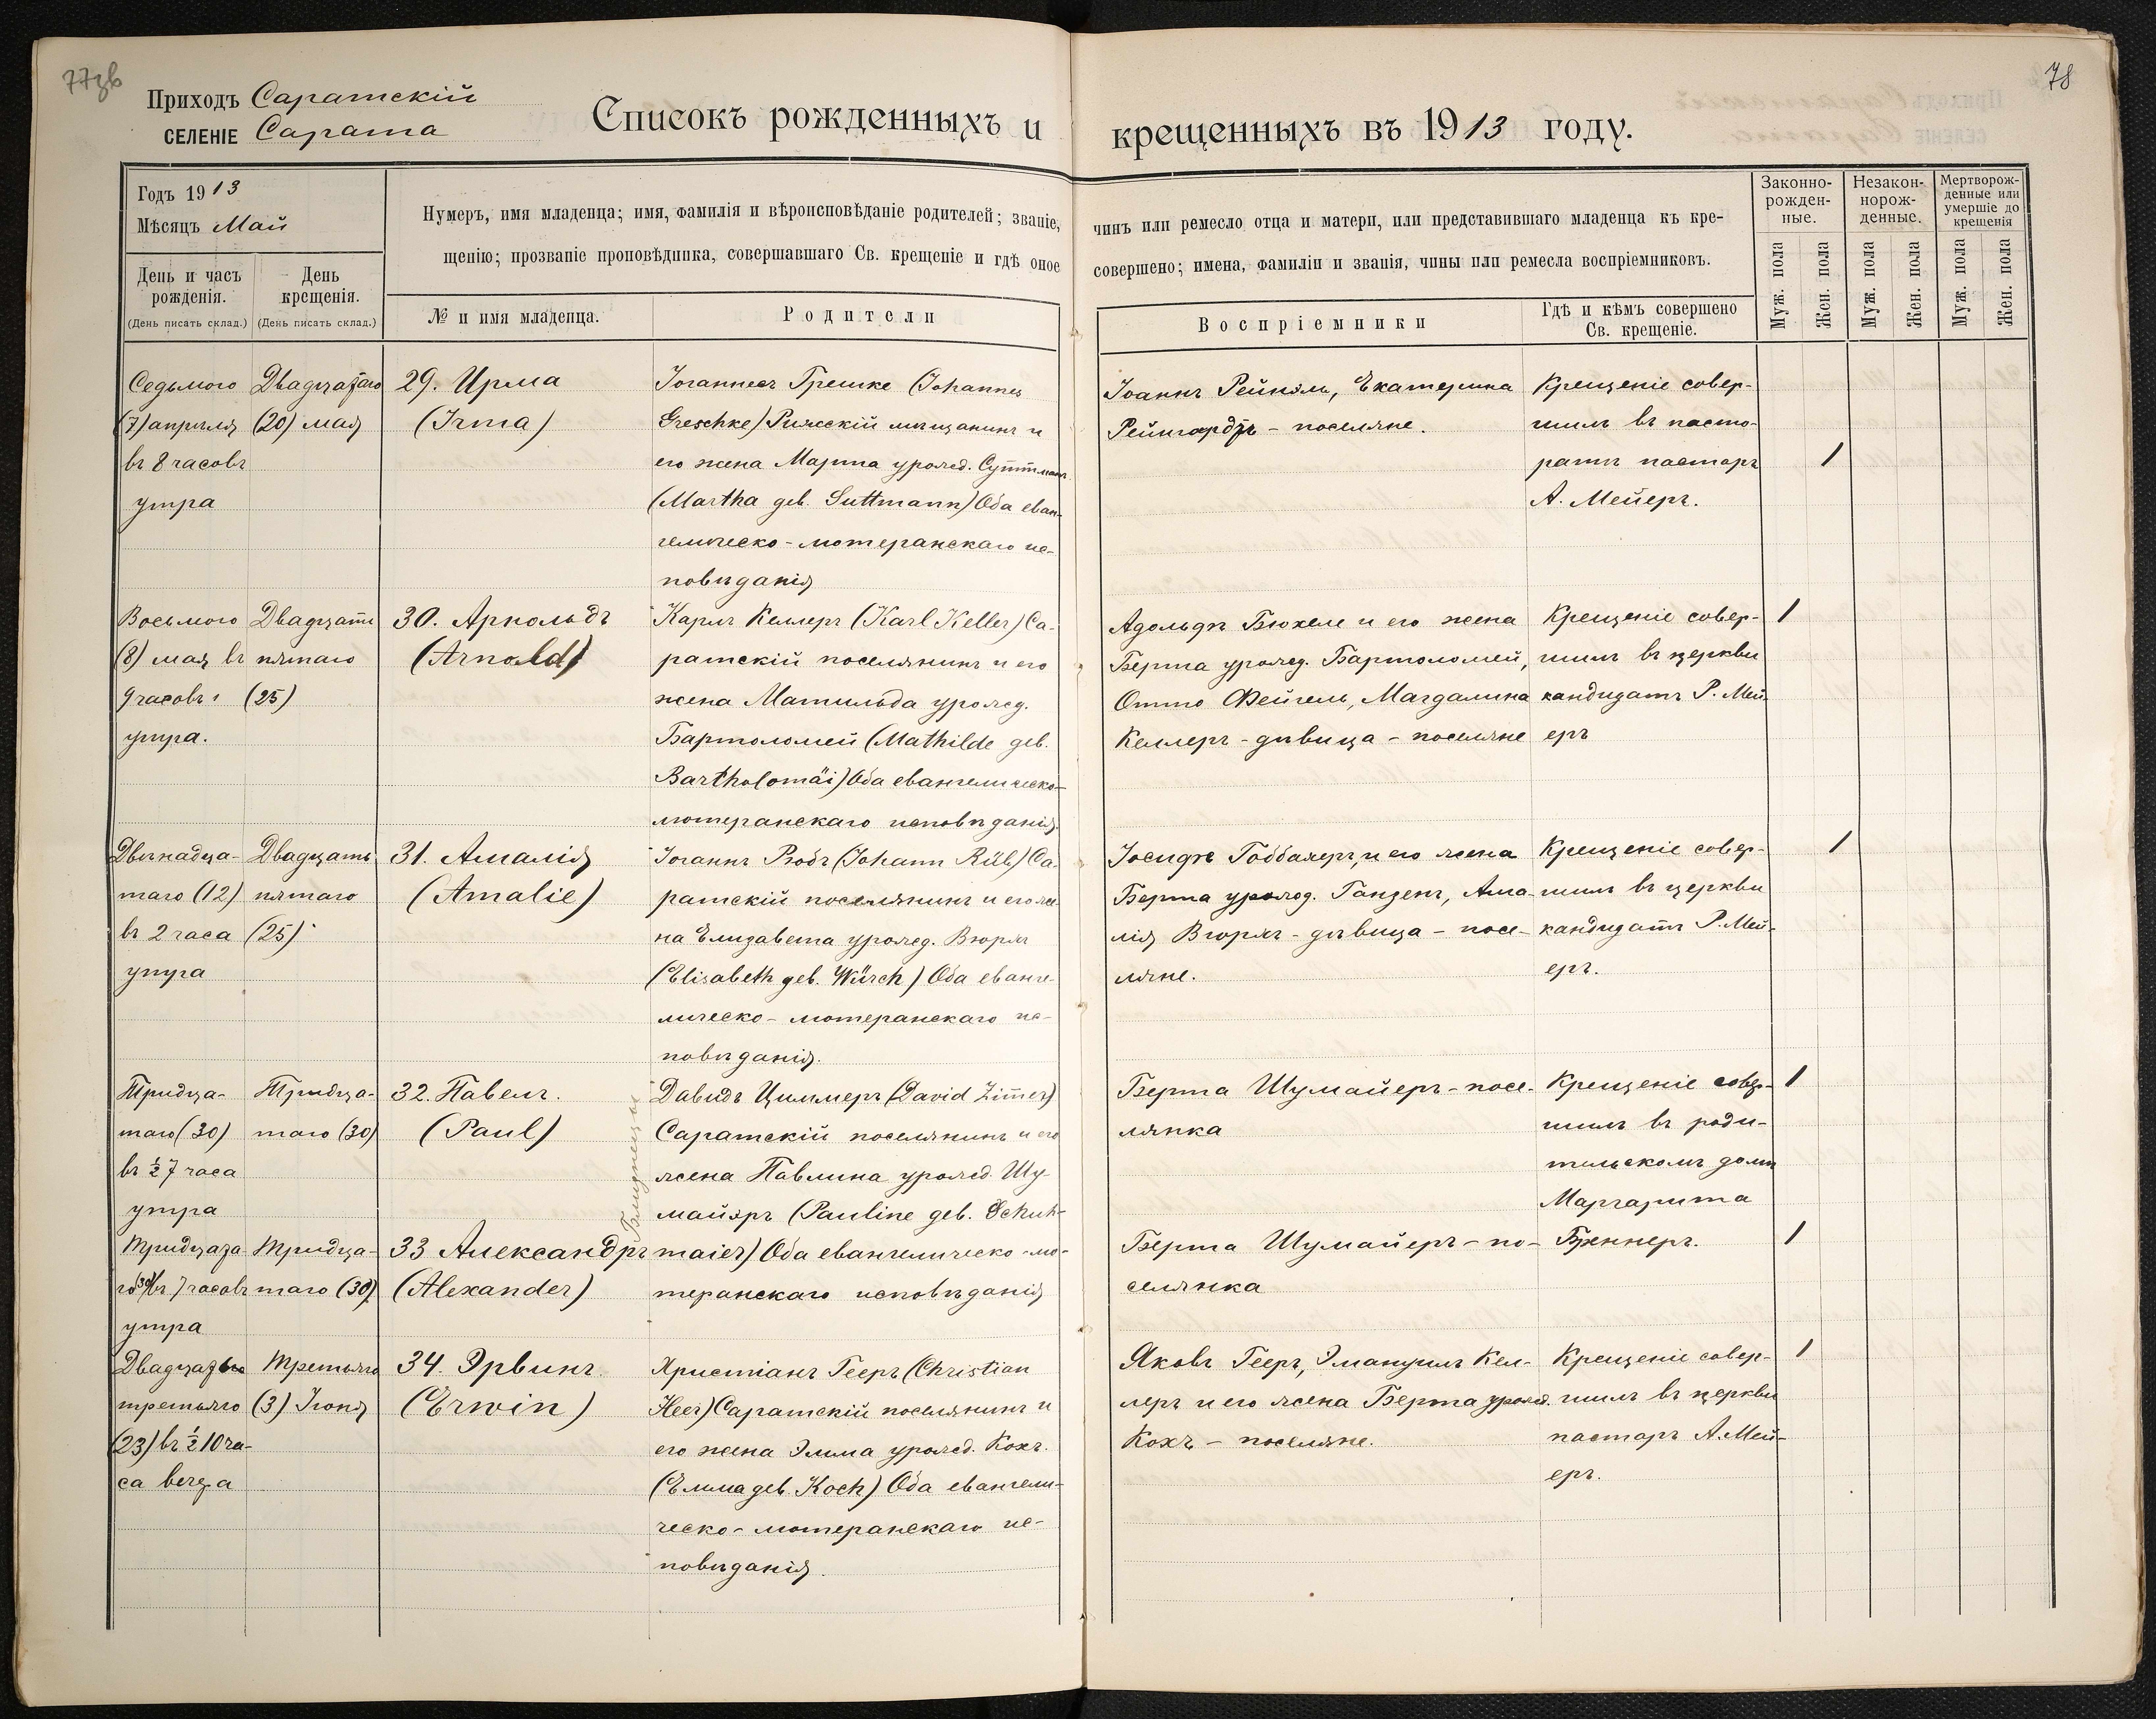 77зв
78
Приходъ Саратскій
СЕЛЕНІЕ Сарата
Списокъ рожденныхъ и крещенныхъ въ 1913 году.
Годъ 1913
Мѣсяцъ Май
День и часъ рожденія.
(День писать склад.)
День крещенія.
(День писать склад.)
Нумеръ, имя младенца; имя, фамилія и вѣроисповѣданіе родителей; званіе, чинъ или ремесло отца и матери, или представившаго младенца къ кре-
щенію; прозваніе проповѣдника, совершавшаго Св. крещеніе и гдѣ оное совершено; имена, фамиліи и званія, чины или ремесла воспріемниковъ.
№ и имя младенца.
Родители
Воспріемники
Гдѣ и кѣмъ совершено
Св. крещеніе.
Законно-
рожден-
ные.
Незакон-
норож-
денные.
Мертворож-
денные или
умершіе до
крещенія
Муж. пола
Жен. пола
Муж. пола
Жен. пола
Муж. пола
Жен. пола
Седьмого
(7) апрѣля
въ 8 часовъ
утра
Двадцатаго
(20) мая
29. Ирма
(Irma)
Іоганнесъ Грешке (Johannes
Greschke) Рижскій мѣщанинъ и
его жена Марта урожд. Суттманъ
(Martha geb. Suttmann) Оба еван-
гелическо-лютеранскаго ис-
повѣданія
Іоаннъ Рейнэль, Екатерина
Рейнгардтъ - поселяне.
Крещеніе совер-
шилъ въ пасто-
ратѣ пасторъ
А. Мейеръ.
1
Восьмого
(8) мая въ
9 часовъ
утра.
Двадцать
пятаго
(25)
30. Арнольдъ
(Arnold)
Карлъ Келлеръ (Karl Keller) Са-
ратскій поселянинъ и его
жена Матильда урожд.
Бартоломей (Mathilde geb.
Bartholomäi) Оба евангелическо-
лютеранскаго исповѣданія.
Адольфъ Бюхеле и его жена
Берта урожд. Бартоломей,
Отто Фейгель, Магдалина
Келлеръ - дѣвица - поселяне
Крещеніе совер-
шилъ въ церкви
кандидатъ Р. Мей-
еръ
1
Двѣнадца-
таго (12)
въ 2 часа
утра
Двадцать
пятаго
(25)
31. Амалія
(Amalie)
Іоганнъ Рюбъ (Johann Rüb) Са-
ратскій поселянинъ и его же-
на Елизавета урожд. Вюрхъ
(Elisabeth geb. Würch) Оба еванге-
лическо-лютеранскаго ис-
повѣданія.
Іосифъ Гоббахеръ, и его жена
Берта урожд. Ганзенъ, Ама-
лія Вюрхъ - дѣвица - посе-
ляне.
Крещеніе совер-
шилъ въ церкви
кандидатъ Р. Мей-
еръ.
1
Тридца-
таго (30)
въ ½ 7 часа
утра
Тридца-
таго (30)
32. Павелъ.
(Paul)
Близнецы
Давидъ Циммеръ (David Zimer)
Саратскій поселянинъ и его
жена Павлина урожд. Шу-
майэръ (Pauline geb. Schuh-
maier) Оба евангелическо-лю-
теранскаго исповѣданія
Берта Шумайеръ - посе-
лянка
Крещеніе совер-
шилъ въ роди-
тельскомъ домѣ
Маргарита
Бреннеръ.
1
Тридцата
го (30) въ 7 часовъ
утра
Тридца-
таго (30)
33 Александръ
(Alexander)
Берта Шумайеръ - по-
селянка
1
Двадцать
третьяго
(23) въ ½ 10 ча-
са вечера
Третьяго
(3) Іюня
34. Эрвинъ.
(Erwin)
Христіанъ Гееръ (Christian
Heer) Саратскій поселянинъ и
его жена Эмма урожд. Кохъ.
(Emma geb. Koch) Оба евангели-
ческо-лютеранскаго ис-
повѣданія.
Яковъ Гееръ, Эмануилъ Кел-
леръ и его жена Берта урожд.
Кохъ - поселяне.
Крещеніе совер-
шилъ въ церкви
пасторъ А. Мей-
еръ.
1